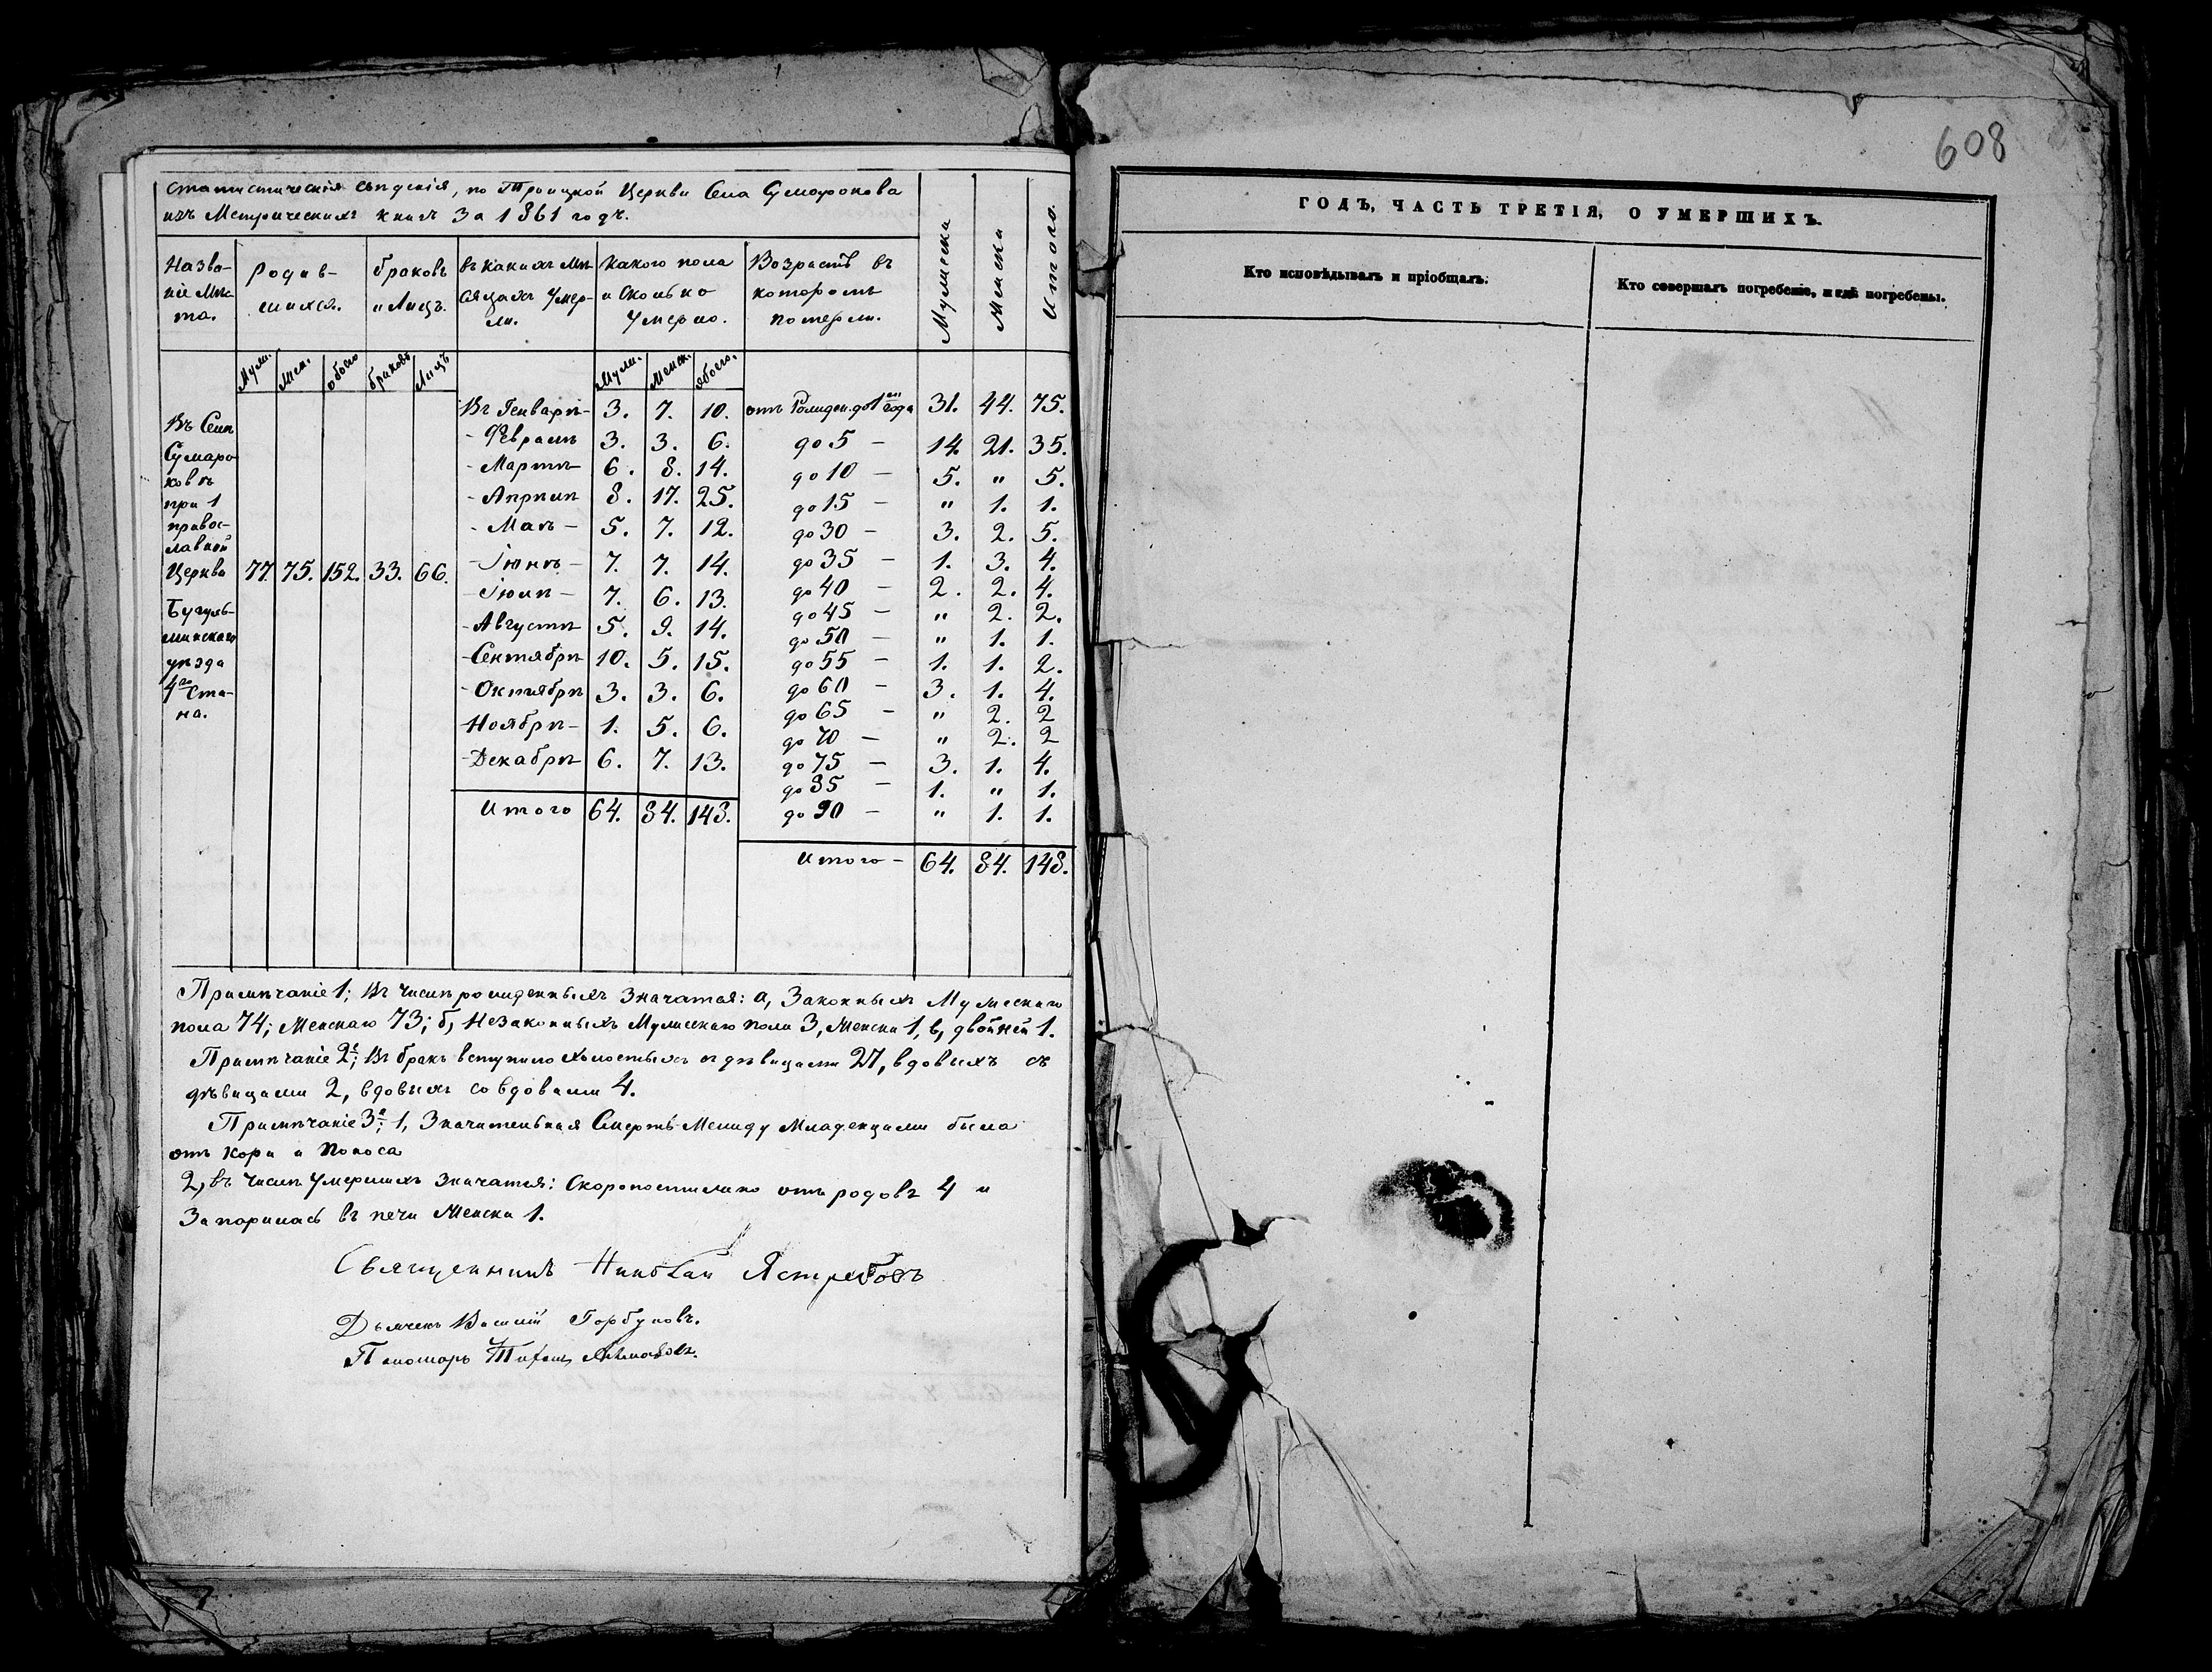 Статистическія свѣденія, по Троицкой Церкви Села Сумарокова
изъ Метрическихъ книгъ за 1861 годъ.
Мужеска Женска Итого.
Назва-
ніе Мѣс-
та.
Родив-
шихся.
браковъ
и Лицъ.
въ какихъ Мѣ-
сяцахъ Умер-
ли.
Какого пола
и сколько
Умерло.
Возрастъ въ
которомъ
померли.
Муж. Жен. обоего браковъ Лицъ Муж. Женск. обоего.
Въ Селѣ
Сумаро-
ковѣ
при 1
правос-
лавной
Церкви
Бугуль-
минскаго
уѣзда
4го Ста-
на.
77. 75. 152. 33. 66.
Въ Генварѣ - 3. 7. 10.
- Февралѣ 3. 3. 6.
- Мартѣ 6. 8. 14.
- Апрѣлѣ 8. 17. 25.
- Маѣ - 5. 7. 12.
- Іюнѣ - 7. 7. 14.
- Іюлѣ - 7. 6. 13.
- Августѣ 5. 9. 14.
- Сентябрѣ 10. 5. 15.
- Октябрѣ 3. 3. 6.
- Ноябрѣ - 1. 5. 6.
- Декабрѣ 6. 7. 13.
Итого 64. 84. 148.
отъ Рожден. до 1го года 31. 44. 75.
до 5 - 14. 21. 35.
до 10 - 5. " 5.
до 15 - " 1. 1.
до 30 - 3. 2. 5.
до 35 - 1. 3. 4.
до 40 - 2. 2. 4.
до 45 - " 2. 2.
до 50 - " 1. 1.
до 55 - 1. 1. 2.
до 60 - 3. 1. 4.
до 65 - " 2. 2
до 70 - " 2. 2
до 75 - 3. 1. 4.
до 85 - 1. " 1.
до 90 - " 1. 1.
Итого - 64. 84. 148.
Примѣчаніе 1; Въ числѣ рожденныхъ Значатся: а, Законныхъ Мужескаго
пола 74; Женскаго 73; б, Незаконныхъ Мужескаго пола 3, Женска 1, в, двойней 1.
Примѣчаніе 2е; Въ бракъ вступило холостыхъ съ дѣвицами 27, вдовыхъ съ
дѣвицами 2, вдовыхъ со вдовами 4.
Примѣчаніе 3е; 1, Значительная Смерть Между Младенцами была
отъ Кори и Поноса
2, въ числѣ Умершихъ Значатся: Скоропостижно отъ родовъ 4 и
Запарилась въ печи Женска 1.
Священникъ Николай Ястребовъ
Дьячекъ Василій Горбуновъ.
Пономарь Тихонъ
608
ГОДЪ, ЧАСТЬ ТРЕТІЯ, О УМЕРШИХЪ.
Кто исповѣдывалъ и пріобщалъ.
Кто совершалъ погребеніе, и гдѣ погребены.